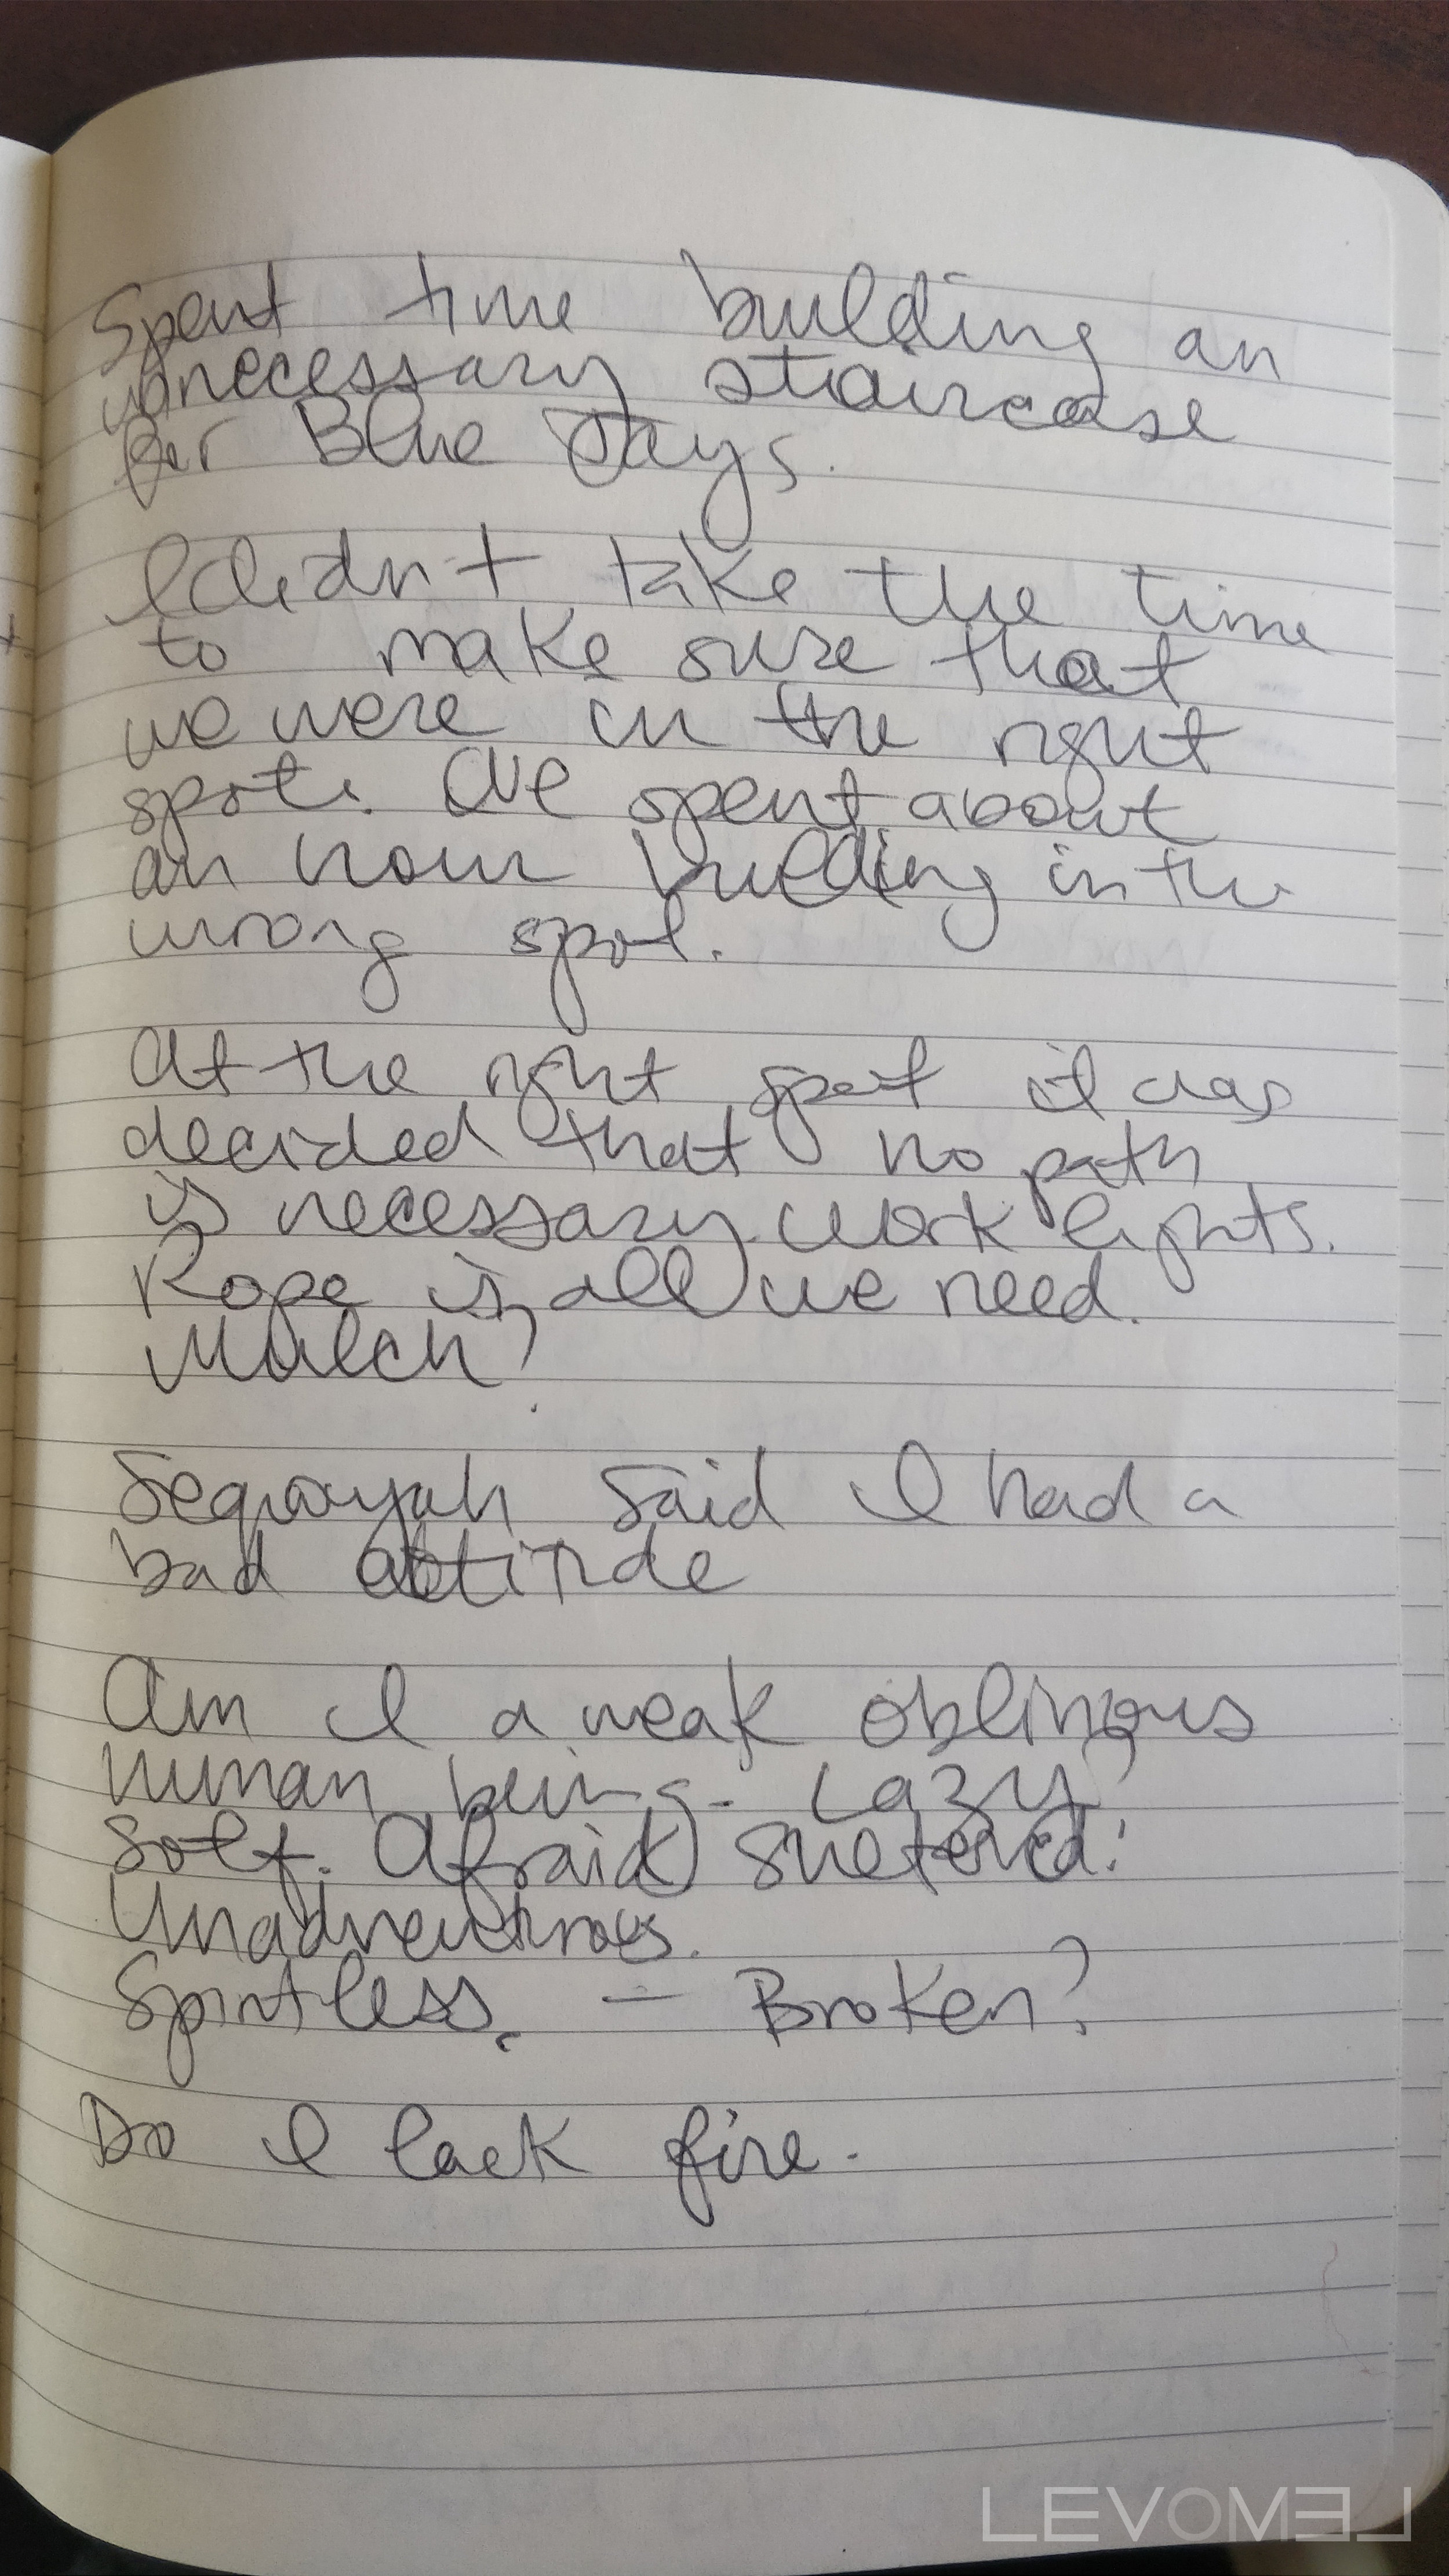 Spent time building an
unnecessary staircase
for Blue Jays.
I didn't take the time
to make sure that
we were in the right
spot. We spent about
an hour building in the
wrong spot.
At the right spot it was
decided that no path
is necessary. Work lights.
Rope is all we need.
Mulch?
Sequoyah said I had a
bad attitude
Am I a weak oblivious
human being. Lazy?
Soft. Afraid sheltered.
Unadventurous.
Spiritless. - Broken?
Do I lack fire.
LEVOMEL